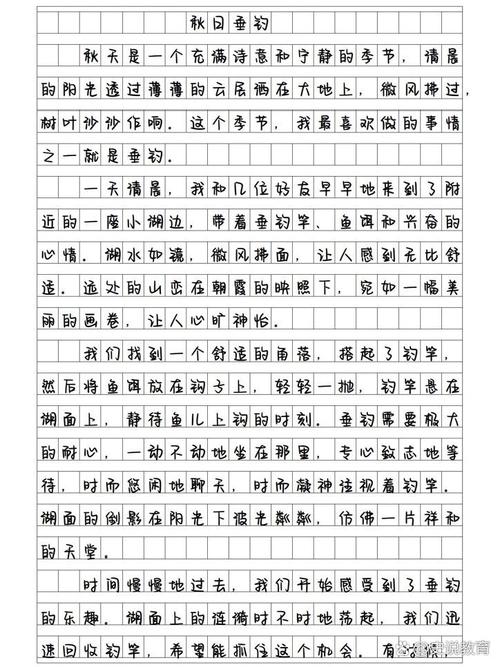 秋日垂钓
秋天是一个充满诗意和宁静的季节，清晨
的阳光透过薄薄的云层洒在大地上，微风拂过，
树叶沙沙作响。这个季节，我最喜欢做的事情
之一就是垂钓。
一天清晨，我和几位好友早早地来到了附
近的一座小湖边，带着垂钓竿、鱼饵和兴奋的
心情。湖水如镜，微风拂面，让人感到无比舒
适。远处的山峦在朝霞的映照下，宛如一幅美
丽的画卷，让人心旷神怡。
我们找到一个舒适的角落，搭起了钓竿，
然后将鱼饵放在钩子上，轻轻一抛，钓竿悬在
湖面上，静待鱼儿上钩的时刻。垂钓需要极大
的耐心，一动不动地坐在那里，专心致志地等
待，时而悠闲地聊天，时而凝神注视着钓竿。
湖面的倒影在阳光下波光粼粼，仿佛一片祥和
的天堂。
时间慢慢地过去，我们开始感受到了垂钓
的乐趣。湖面上的涟漪时不时地荡起，我们迅
速回收钓竿，希望能抓住这个机会。有
教育